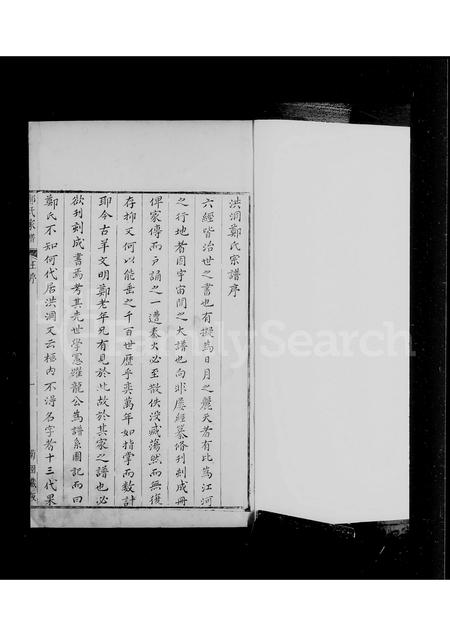 洪洞鄭氏宗譜序
六經皆治世之書也有擬為日月之麗天者有比為江河
之行地者固宇宙間之大譜也向非屢經纂脩刊刻成冊
俾家傳而戶誦之一遭秦火必至散佚沒滅蕩然而無復
存抑又何以能垂之千百世歷乎奕萬年如指掌而數計
耶今古羊文明鄭老年兄有見於此故於其家之譜也必
欲刊刻成書焉考其先世學憲躍龍公為譜系圖記而曰
鄭氏不知何代居洪洞又云樞內不得名字者十三代果
鄭氏宗譜 序 一
FamilySearch